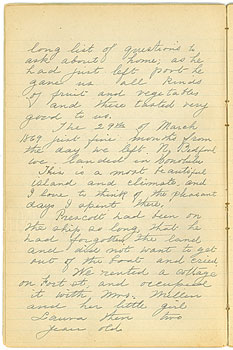 long list of questions to
ask about home; as he
had just left port he
gave us all kinds
of fruit and vegetables
and these tasted very
good to us.
The 29th of March
1869 just five months from
the day we left N. Bedford
we landed in Honolulu
This is a most beautiful
island and climate, and
I love to think of the pleasant
days I spent there.
Prescott had been on
the ship so long, that he
had forgotten the land
and did not want to get
out of the boat and cried
We rented a cottage
on Fort st, and occupied
it with Mrs. Millen
and her little girl
Laura then two
years old